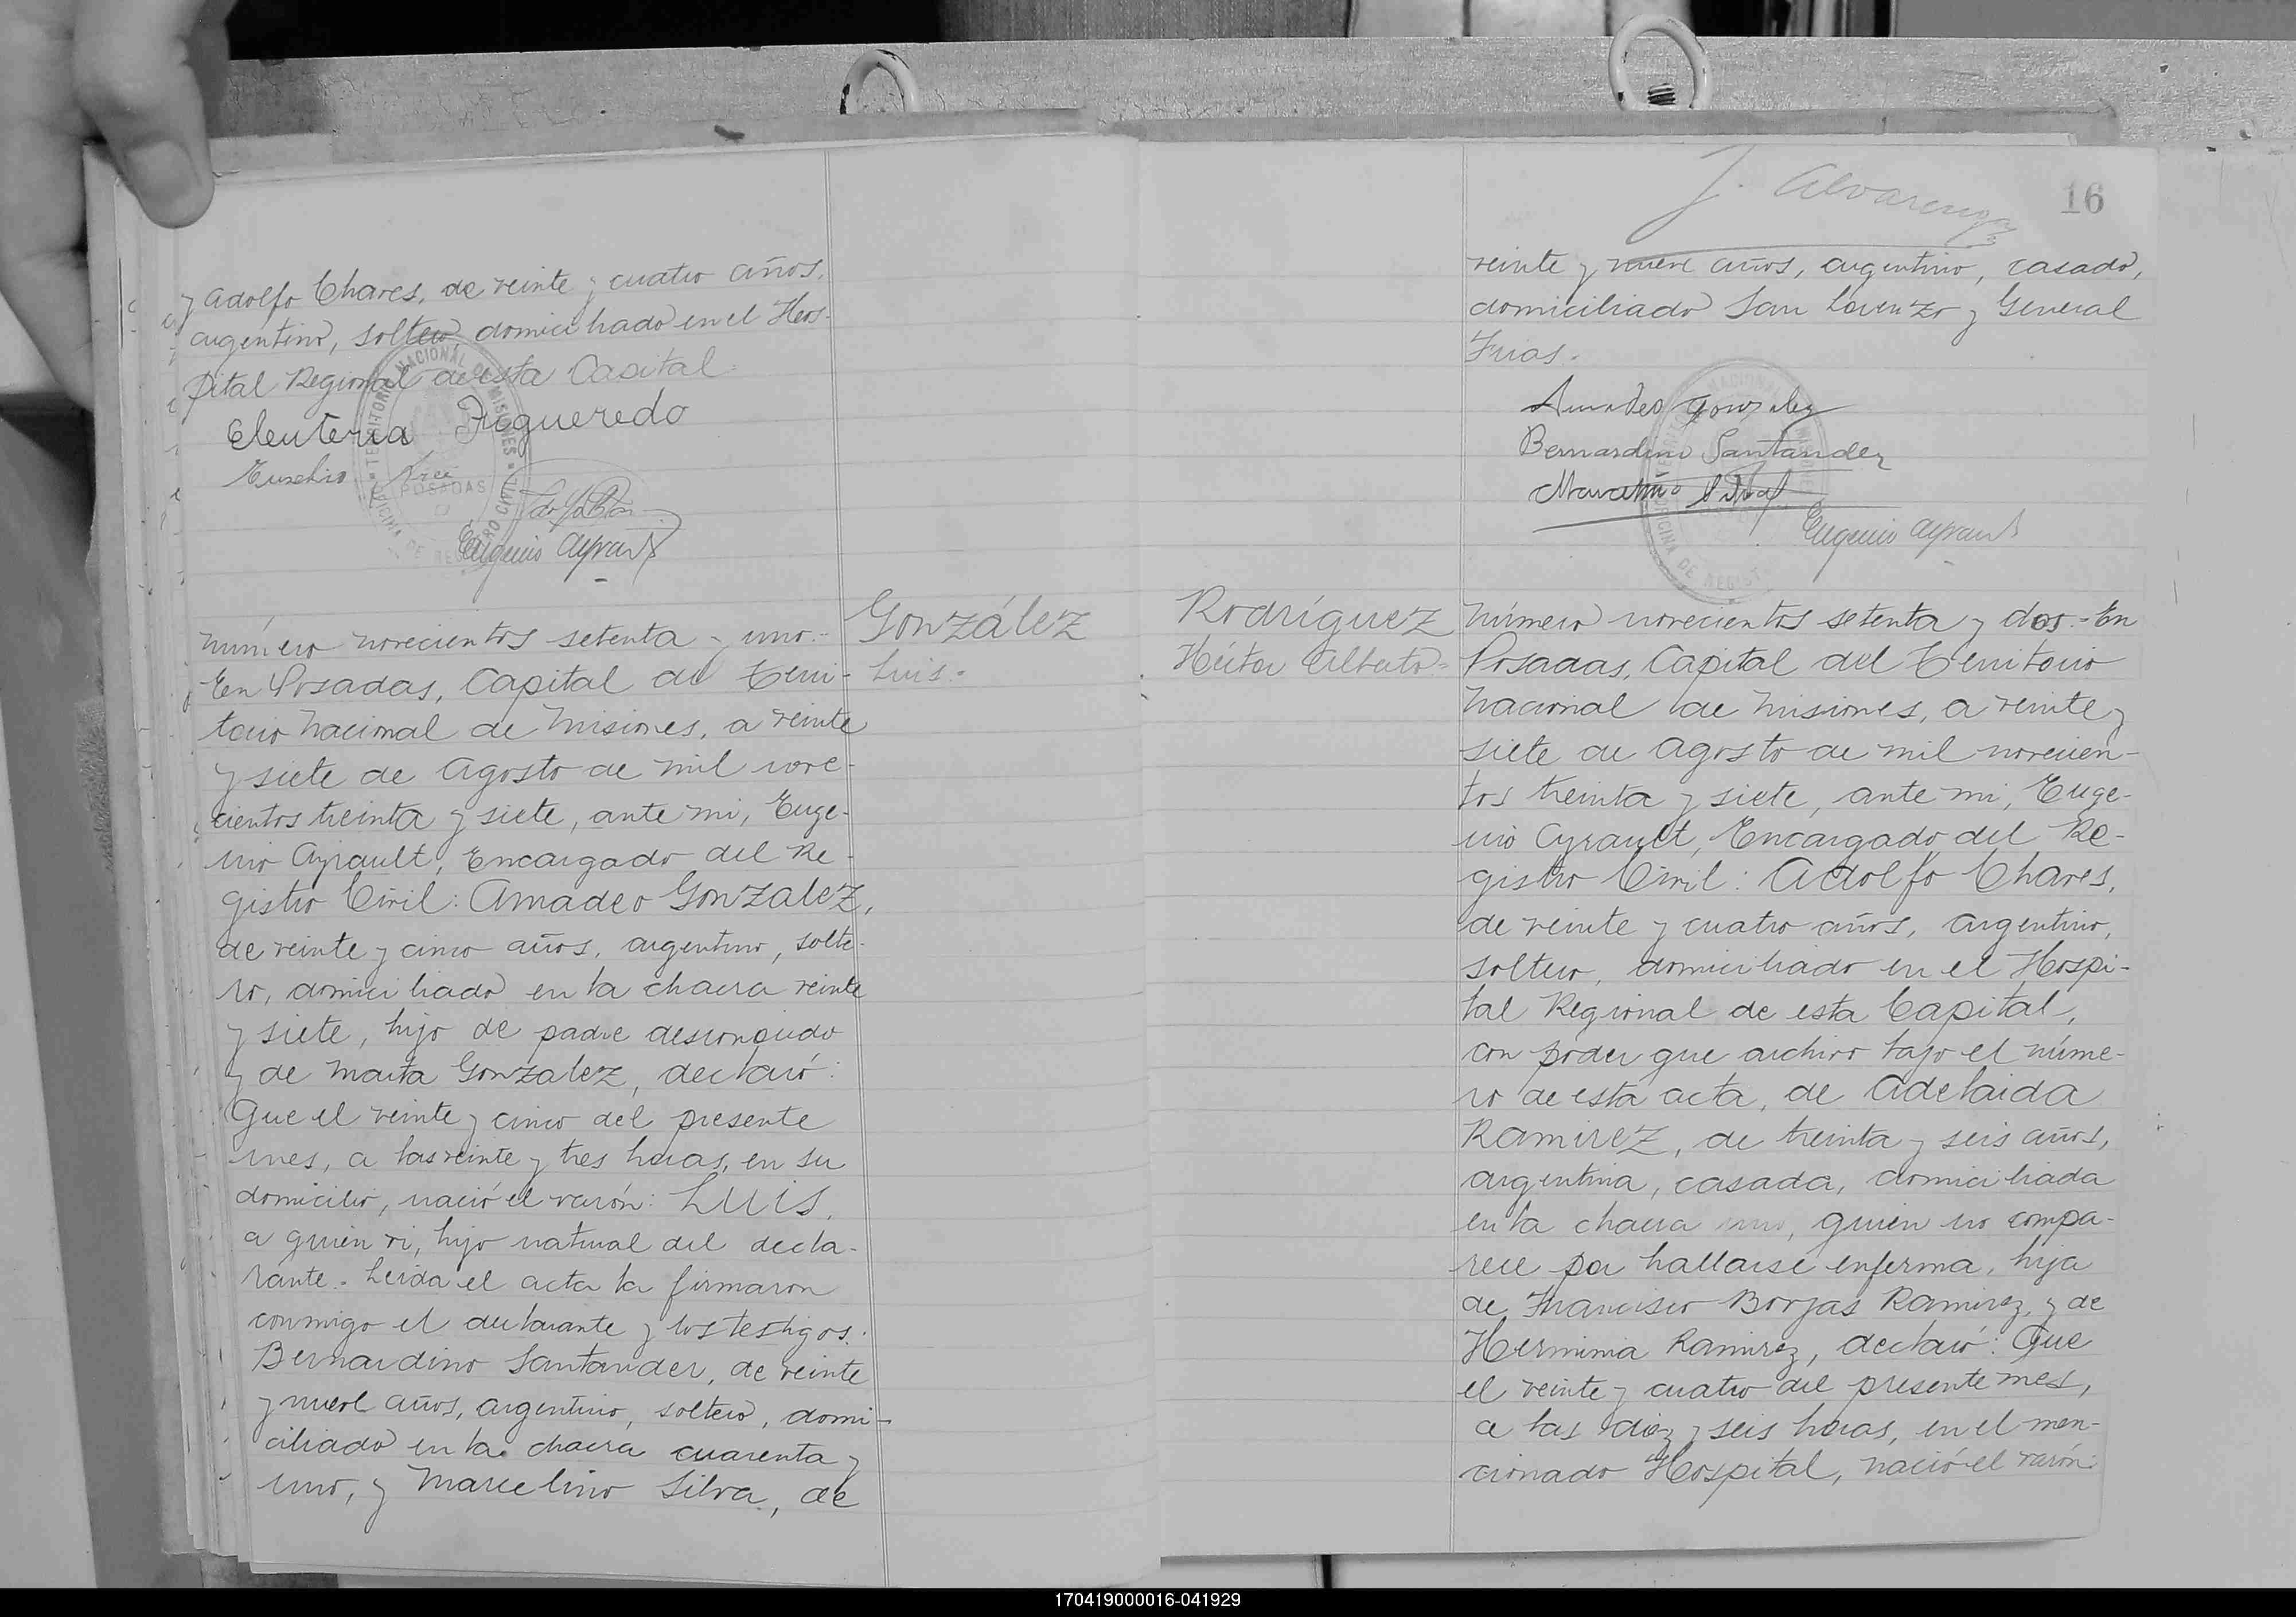 y Adolfo Chaves, de veinte y cuatro años,
argentino, soltero, domiciliado en el Hos-
pital Regional de esta Capital.
Eleuteria Figueredo
Eusebio
Eugenio Ayrault
González
Luis.-
número novecientos setenta y uno.-
En Posadas, Capital del Terri-
torio Nacional de Misiones, a veinte
y siete de Agosto de mil nove-
cientos treinta y siete, ante mi, Euge-
nio Ayrault, Encargado del Re-
gistro Civil: Amadeo Gonzalez,
de veinte y cinco años, argentino, solte-
ro, domiciliado en la chacra veinte
y siete, hijo de padre desconocido
y de Marta Gonzalez, declaró:
Que el veinte y cinco del presente
mes, a las veinte y tres horas, en su
domicilio, nació el varón: LUIS,
a quien vi, hijo natural del decla-
rante.- Leida el acta la firmaron
conmigo el declarante y los testigos:
Bernardino Santander, de veinte
y nueve años, argentino, soltero, domi-
ciliado en la chacra cuarenta y
uno, y Marcelino Silva, de
J. Alvarenga
16
veinte y nueve años, argentino, casado,
domiciliado San Lorenzo y General
Frias.
Amadeo Gonzalez
Bernardino Santander
Marcelino Silva
Eugenio Ayrault
Rodríguez
Héctor Alberto-
Número novecientos setenta y dos.- En
Posadas, Capital del Territorio
Nacional de Misiones, a veinte y
siete de Agosto de mil novecien-
tos treinta y siete, ante mi, Euge-
nio Ayrault, Encargado del Re-
gistro Civil: Adolfo Chaves,
de veinte y cuatro años, argentino,
soltero, domiciliado en el Hospi-
tal Regional de esta Capital,
con poder que archivo bajo el núme-
ro de esta acta, de Adelaida
Ramirez, de treinta y seis años,
argentina, casada, domiciliada
en la chacra uno, quien no compa-
rece por hallarse enferma, hija
de Francisco Borjas Ramirez y de
Herminia Ramirez, declaró: Que
el veinte y cuatro del presente mes,
a las diez y seis horas, en el men-
cionado Hospital, nació el varón:
170419000016-041929